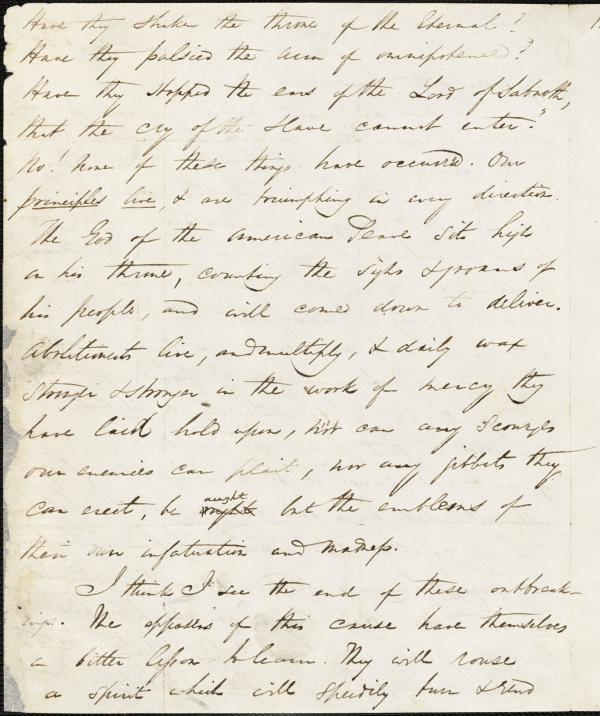 Have they shaken the throne of the Eternal?
Have they palsied the arm of omnipotence?
Have they stopped the ears of the Lord of Sabaoth,
that the cry of the slave cannot enter?"
No! None of these things have occurred. Our
principles live, & are triumphing in every direction.
The God of the American Slave sits high
on his throne, counting the sighs & groans of
his people, and will come down to deliver.
Abolitionists live, and multiply, & daily wax
stronger & stronger in the work of mercy they
have laid hold upon, nor can any scourges
our enemies can plait, nor any gibbets they
can erect, be aught but the emblems of
their own infatuation and madness.
I think I see the end of these outbreak-
ings. The opposers of this cause have themselves
a bitter lesson to learn. They will rouse
a spirit which will speedily turn & rend